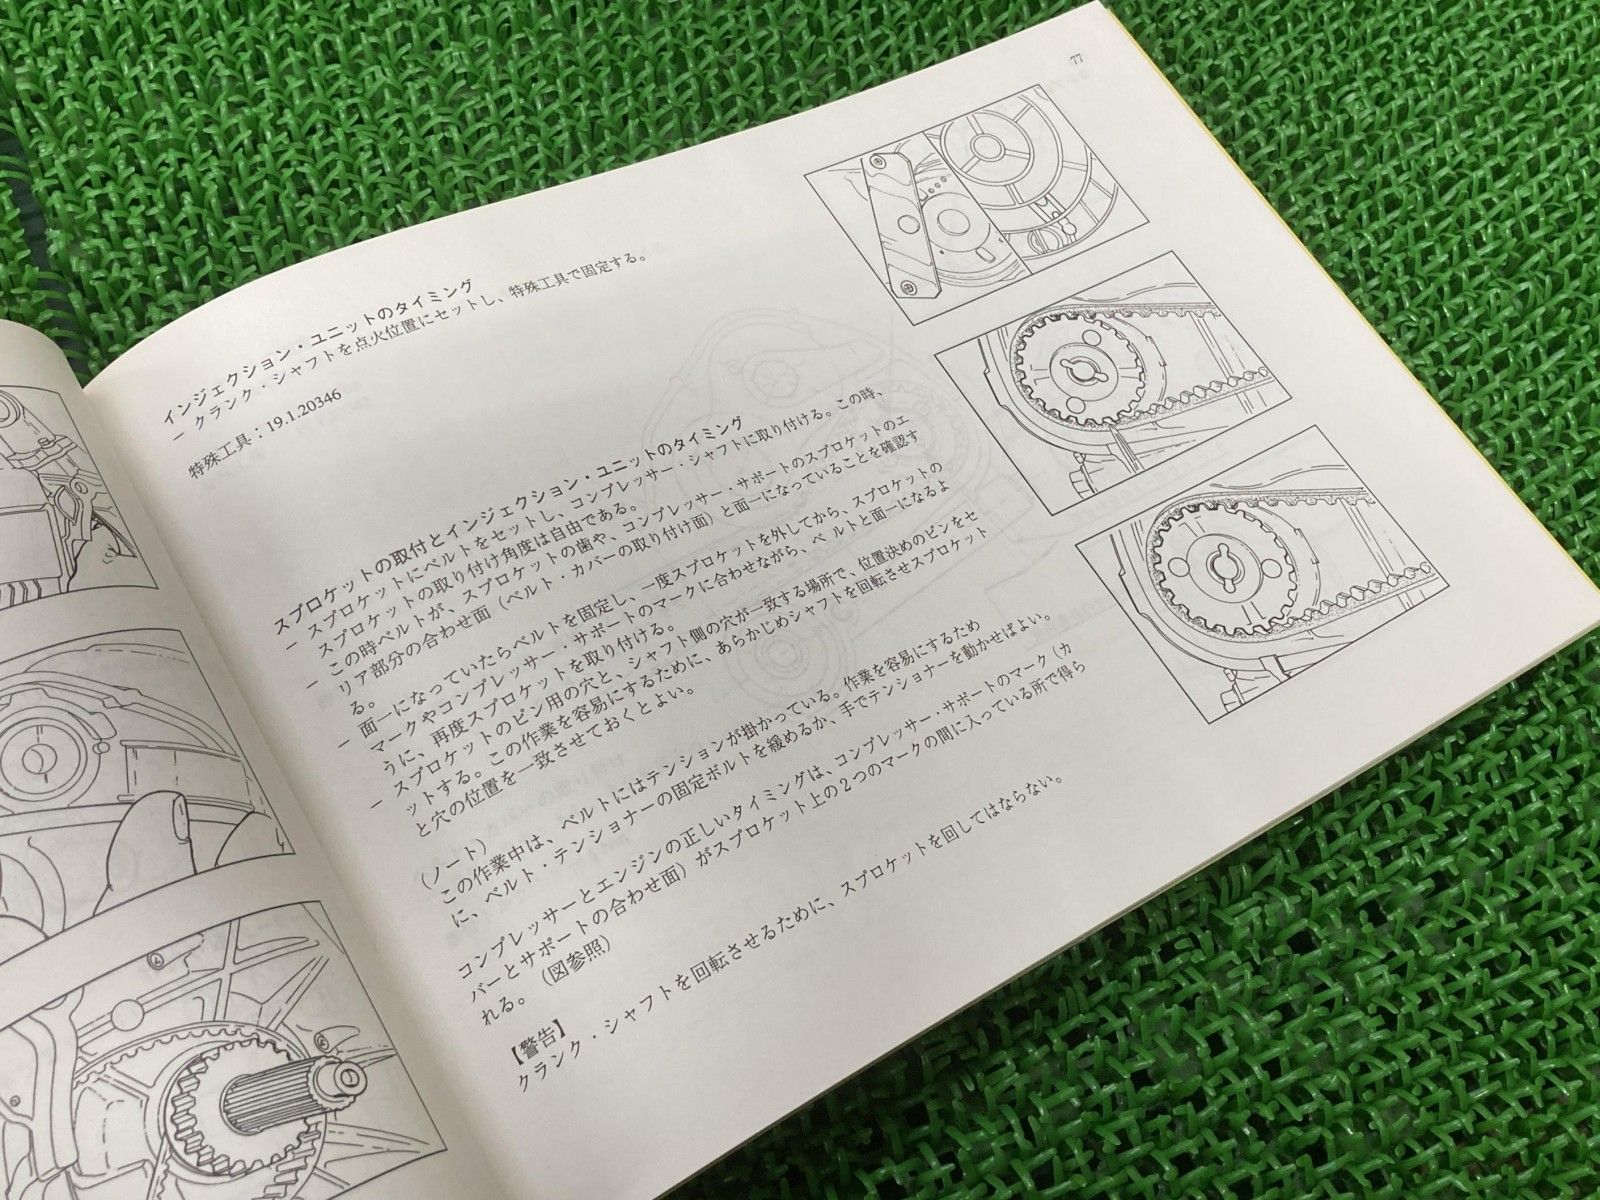 77
インジェクション・ユニットのタイミング
− クランク・シャフトを点火位置にセットし、特殊工具で固定する。
特殊工具：19.1.20346
スプロケットの取付とインジェクション・ユニットのタイミング
− スプロケットにベルトをセットし、コンプレッサー・シャフトに取り付ける。この時、
スプロケットの取り付け角度は自由である。
− この時ベルトが、スプロケットの歯や、コンプレッサー・サポートのスプロケットのエ
リア部分の合わせ面（ベルト・カバーの取り付け面）と面一になっていることを確認す
る。
− 面一になっていたらベルトを固定し、一度スプロケットを外してから、スプロケットの
マークやコンプレッサー・サポートのマークに合わせながら、ベルトと面一になるよ
うに、再度スプロケットを取り付ける。
− スプロケットのピン用の穴と、シャフト側の穴が一致する場所で、位置決めのピンをセ
ットする。この作業を容易にするために、あらかじめシャフトを回転させスプロケット
と穴の位置を一致させておくとよい。
（ノート）
この作業中は、ベルトにはテンションが掛かっている。作業を容易にするため
に、ベルト・テンショナーの固定ボルトを緩めるか、手でテンショナーを動かせばよい。
コンプレッサーとエンジンの正しいタイミングは、コンプレッサー・サポートのマーク（カ
バーとサポートの合わせ面）がスプロケット上の２つのマークの間に入っている所で得ら
れる。（図参照）
【警告】
クランク・シャフトを回転させるために、スプロケットを回してはならない。